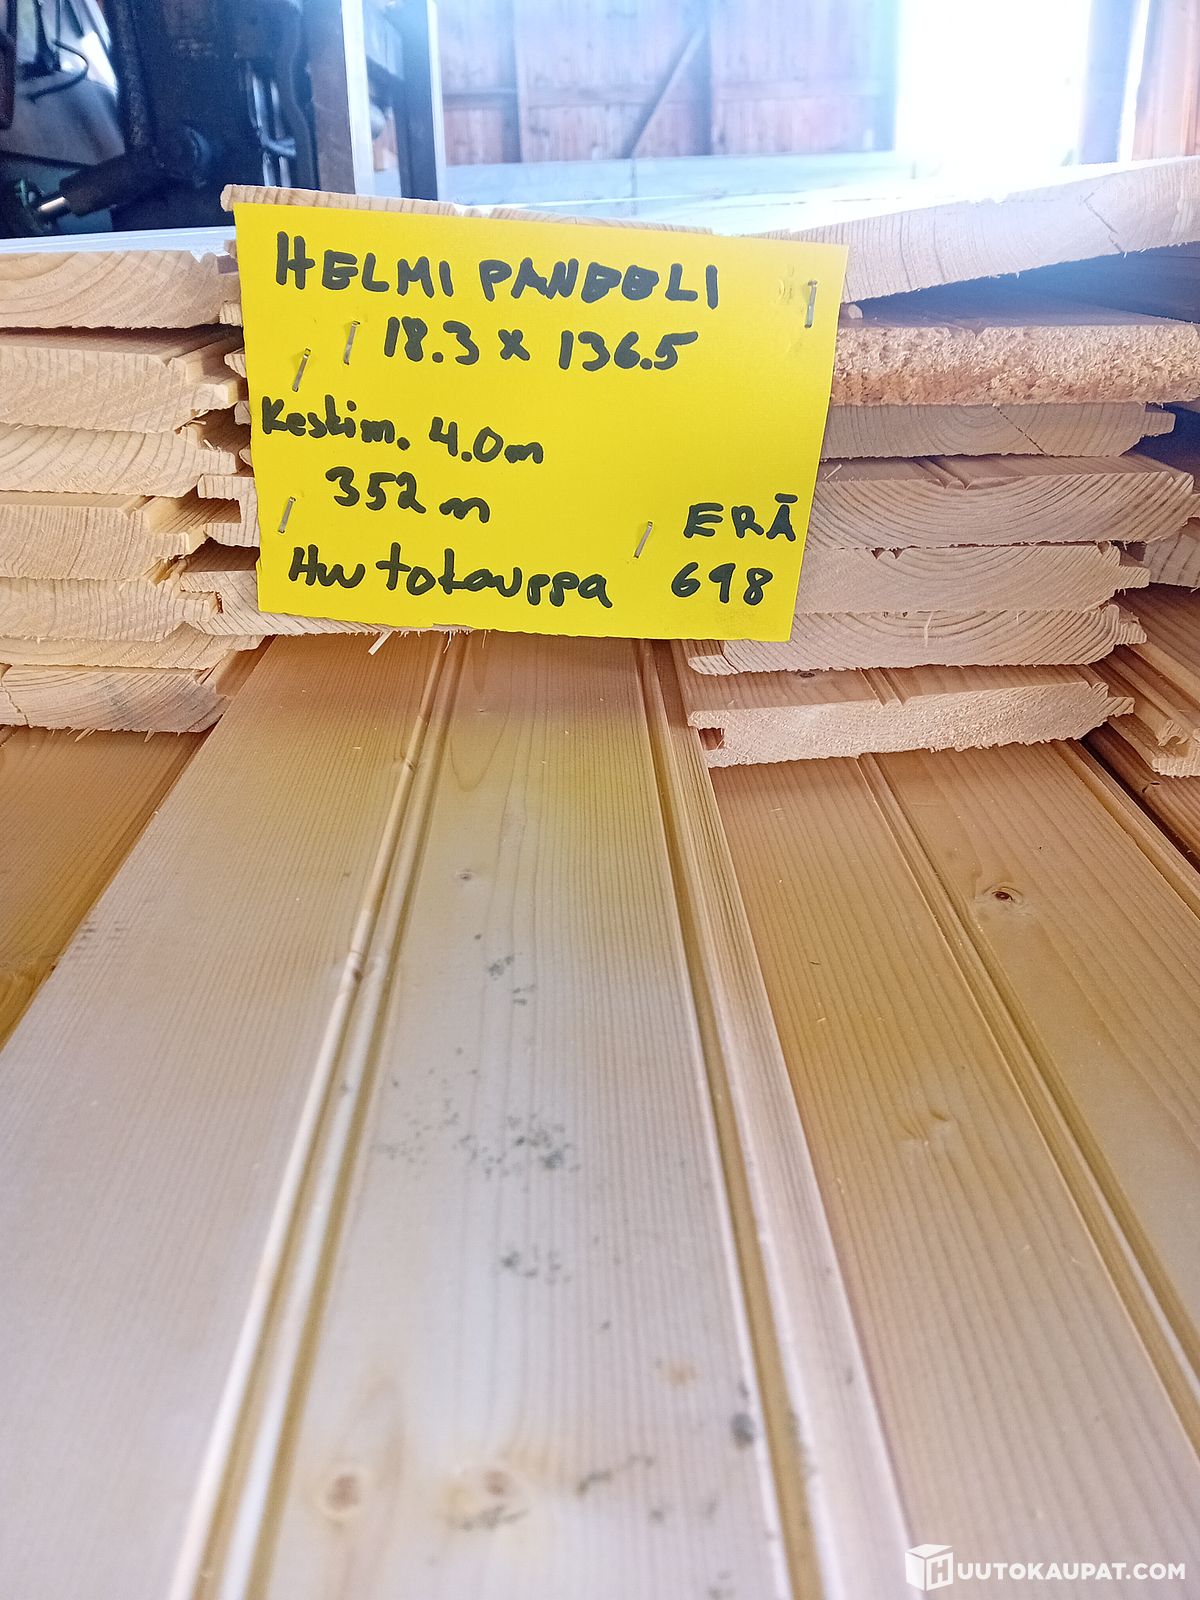 HELMI PANEELI
18.3 x 136.5
Keskim. 4.0m
352 m
Huutokauppa
ERÄ
698
HUUTOKAUPAT.COM